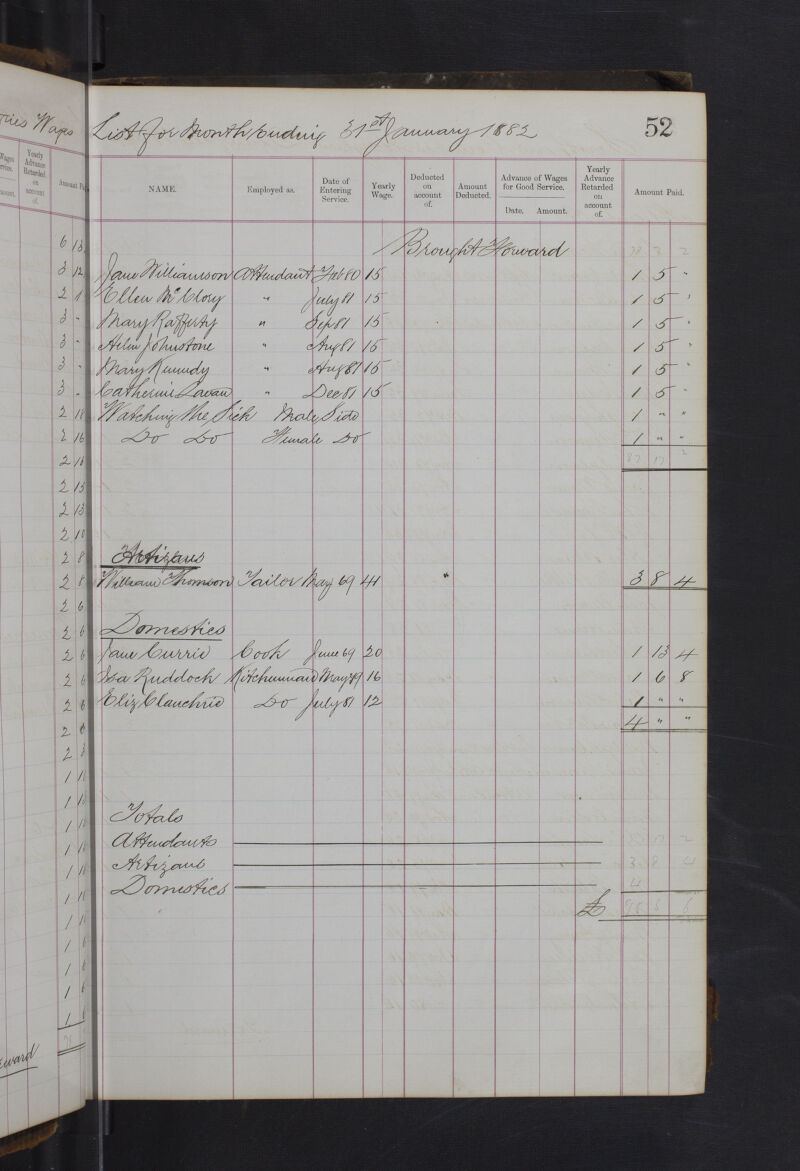 ries Wages
List for Month ending 31st January 1882
52
Wages
Yearly Advance Retarded on account of.
Amount Pa
NAME.
Employed as.
Date of Entering Service.
Yearly Wage.
Deducted on account of.
Amount Deducted.
Advance of Wages for Good Service.
Date. Amount.
Yearly Advance Retarded on account of.
Amount Paid.
Brought Forward
Jane Williamson Attendant Feb 80 15 1 5 "
Ellen McClory " July 81 15 1 5 "
Mary Rafferty " Sep 81 15 1 5 "
Helen Johnstone " Aug 81 15 1 5 "
Mary Kennedy " Aug 81 15 1 5 "
Catherine Lavan " Dec 81 15 1 5 "
Watching the Sick Male Side 1 " "
Do Do Female Do 1 " "
87 17 2
Artizans
William Thomson Tailor May 69 41 " 3 8 4
Domestics
Jane Currie Cook June 69 20 1 13 4
Isa Ruddock Kitchenmaid May 79 16 1 6 8
Eliz Clauchrie Do July 81 12 1 " "
4 " "
Totals
Attendants 2
Artizans 3 8 4
Domestics 4
£
6 13
3 12
2 1
3 -
3 -
3 -
3 -
2 18
2 16
2 16
2 15
2 13
2 10
2 8
2 8
2 6
2 6
2 6
2 6
2 6